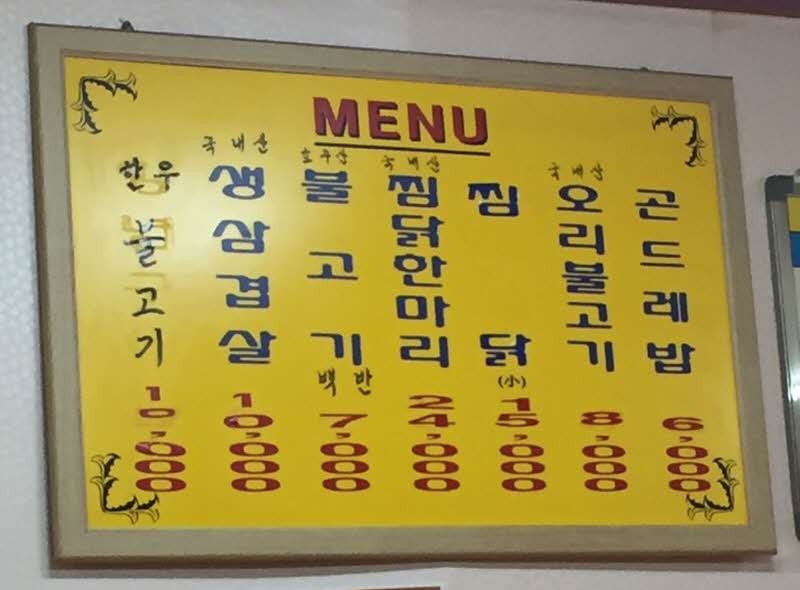 MENU
한우
불고기
10,000
국내산
생삼겹살
10,000
호주산
불고기
백반
7,000
국내산
찜닭한마리
24,000
찜닭
(小)
15,000
국내산
오리불고기
8,000
곤드레밥
6,000